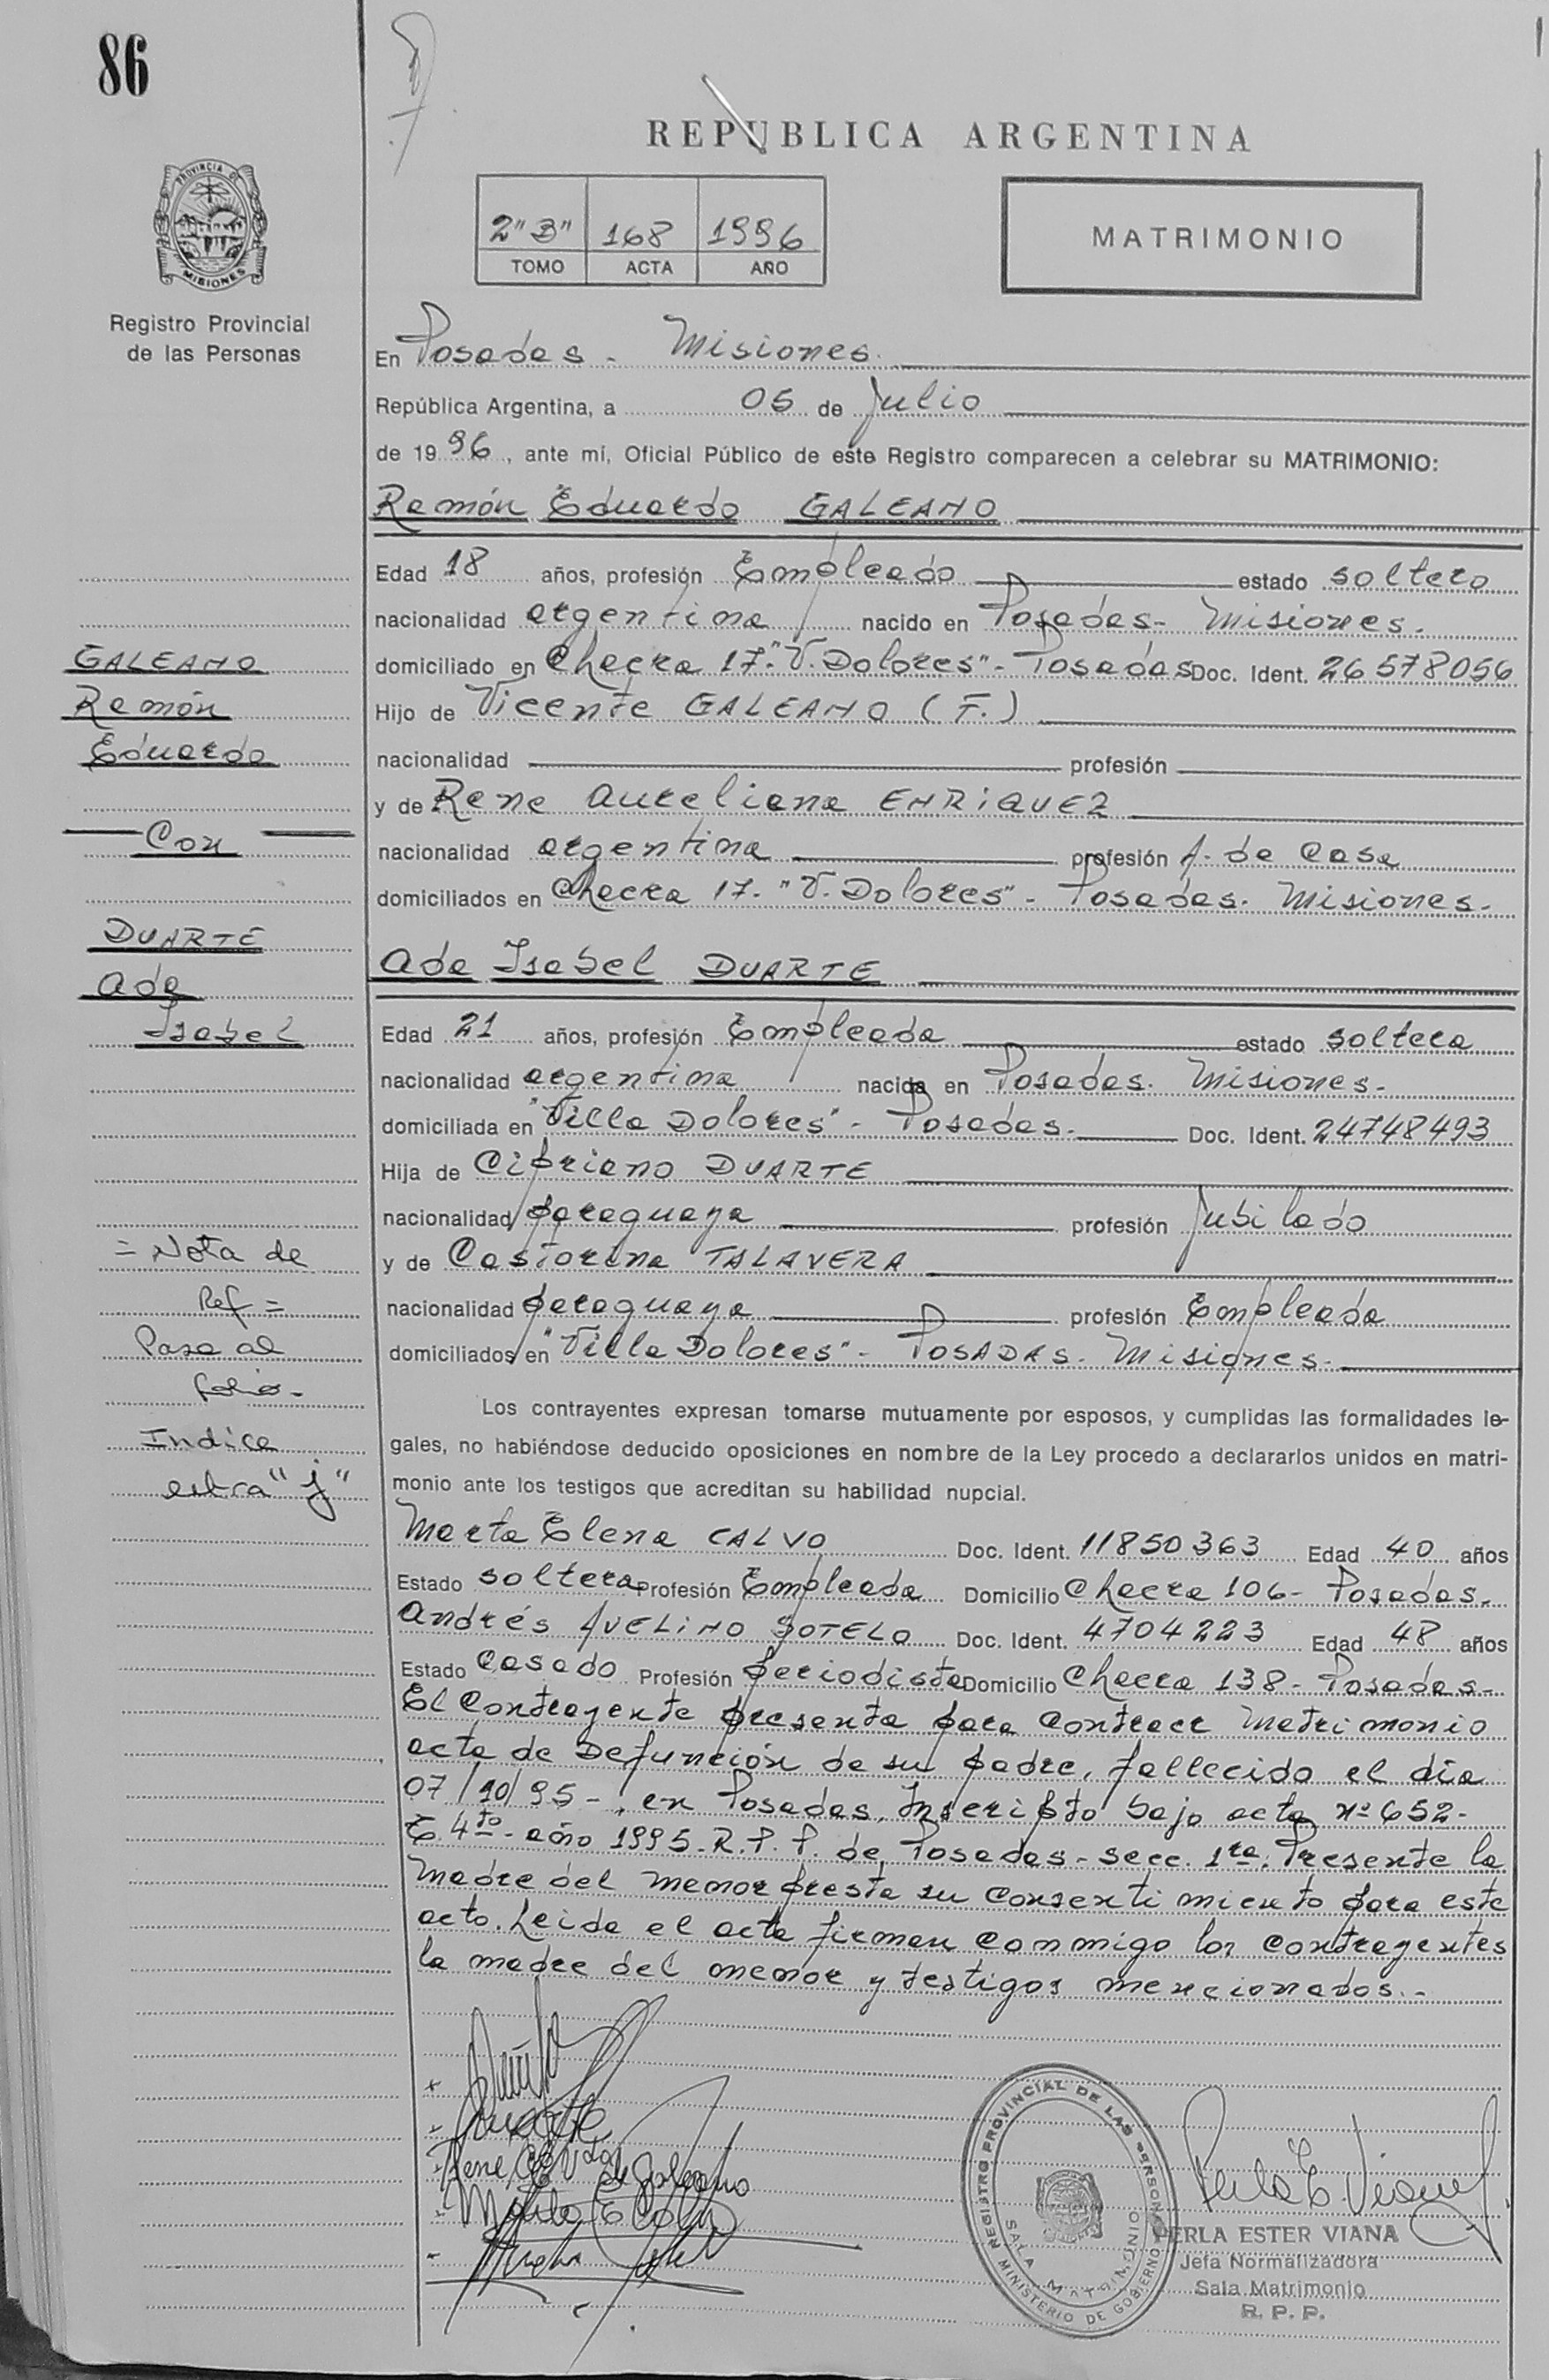 86
REPUBLICA ARGENTINA
PROVINCIA DE
MISIONES
Registro Provincial
de las Personas
2"B" 168 1996
TOMO ACTA AÑO
MATRIMONIO
En Posadas - Misiones.
República Argentina, a 05 de Julio
de 1996, ante mí, Oficial Público de este Registro comparecen a celebrar su MATRIMONIO:
Ramón Eduardo GALEANO
Edad 18 años, profesión Empleado estado soltero
nacionalidad argentina nacido en Posadas- Misiones.
domiciliado en Chacra 17."V.Dolores"- Posadas Doc. Ident. 26578056
Hijo de Vicente GALEANO (F.)
nacionalidad profesión
y de Rene Aureliana ENRIQUEZ
nacionalidad argentina profesión A. de Casa
domiciliados en Chacra 17. "V. Dolores"- Posadas. Misiones-
Ada Isabel DUARTE
Edad 21 años, profesión Empleada estado soltera
nacionalidad argentina nacida en Posadas. Misiones-
domiciliada en "Villa Dolores"- Posadas. Doc. Ident. 24748493
Hija de Cipriano DUARTE
nacionalidad paraguaya profesión Jubilado
y de Castorina TALAVERA
nacionalidad paraguaya profesión Empleada
domiciliados en "Villa Dolores"- POSADAS. Misiones-
GALEANO
Ramón
Eduardo
Con
DUARTE
Ada
Isabel
= Nota de
Ref =
Pasa al
folio-
Indice
letra "j"
Los contrayentes expresan tomarse mutuamente por esposos, y cumplidas las formalidades le-
gales, no habiéndose deducido oposiciones en nombre de la Ley procedo a declararlos unidos en matri-
monio ante los testigos que acreditan su habilidad nupcial.
Marta Elena CALVO Doc. Ident. 11850363 Edad 40 años
Estado soltera Profesión Empleada Domicilio Chacra 106- Posadas.
Andrés AVELINO SOTELO Doc. Ident. 4704223 Edad 48 años
Estado Casado Profesión periodista Domicilio Chacra 138- Posadas-
El Contrayente presenta para Contraer Matrimonio
acta de Defunción de su padre, fallecido el día
07/10/95-, en Posadas, Inscripto bajo acta nº 652-
T. 4to- año 1995. R.P.P. de Posadas- secc. 1ra. Presente la
Madre del menor presta su Consentimiento para este
acto. Leida el acta firman conmigo los contrayentes
la madre del menor y testigos mencionados.-
Duarte
Rene de Galeano
REGISTRO PROVINCIAL DE LAS PERSONAS
SALA MATRIMONIO
MINISTERIO DE GOBIERNO
Perla E. Viana
PERLA ESTER VIANA
Jefa Normalizadora
Sala Matrimonio
R. P. P.